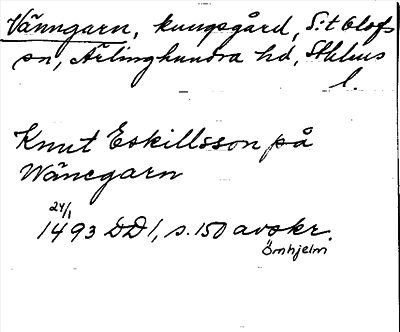 Vänngarn, kungsgård, S:t Olofs
sn, Ärlinghundra hd, Sthlms
l.
Knut Eskillsson på
Wänegarn
24/1
1493 DD1, s. 150 avskr.
Örnhjelm